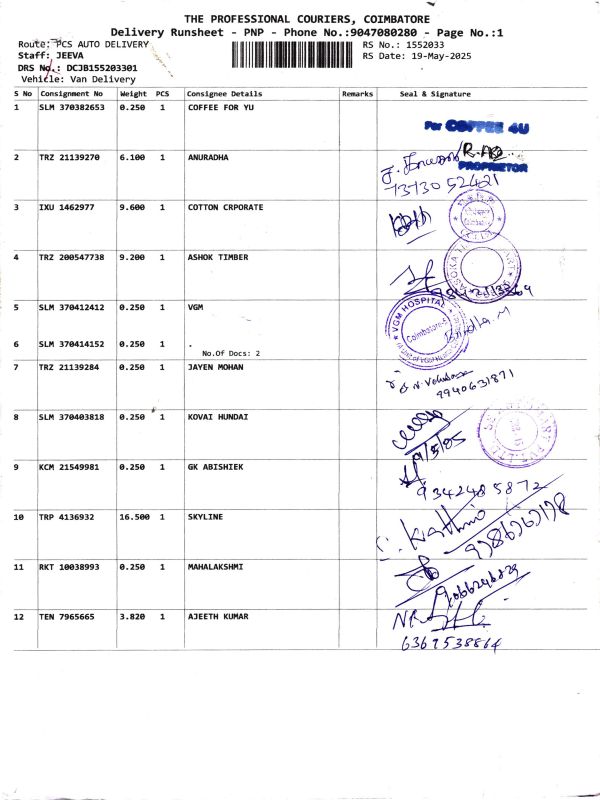 THE PROFESSIONAL COURIERS, COIMBATORE
Delivery Runsheet - PNP - Phone No.:9047080280 - Page No.:1
Route: PCS AUTO DELIVERY
RS No.: 1552033
Staff: JEEVA
RS Date: 19-May-2025
DRS No.: DCJB155203301
Vehicle: Van Delivery
S No Consignment No Weight PCS Consignee Details Remarks Seal & Signature
1 SLM 370382653 0.250 1 COFFEE FOR YU
For COFFEE 4U
PROPRIETOR
2 TRZ 21139270 6.100 1 ANURADHA
73730 52421
3 IXU 1462977 9.600 1 COTTON CRPORATE
4 TRZ 200547738 9.200 1 ASHOK TIMBER
5 SLM 370412412 0.250 1 VGM
VGM HOSPITAL
Coimbatore-5
6 SLM 370414152 0.250 1 .
No.Of Docs: 2
7 TRZ 21139284 0.250 1 JAYEN MOHAN
9940631871
8 SLM 370403818 0.250 1 KOVAI HUNDAI
9 KCM 21549981 0.250 1 GK ABISHIEK
9342485872
10 TRP 4136932 16.500 1 SKYLINE
11 RKT 10038993 0.250 1 MAHALAKSHMI
12 TEN 7965665 3.820 1 AJEETH KUMAR
6369538864